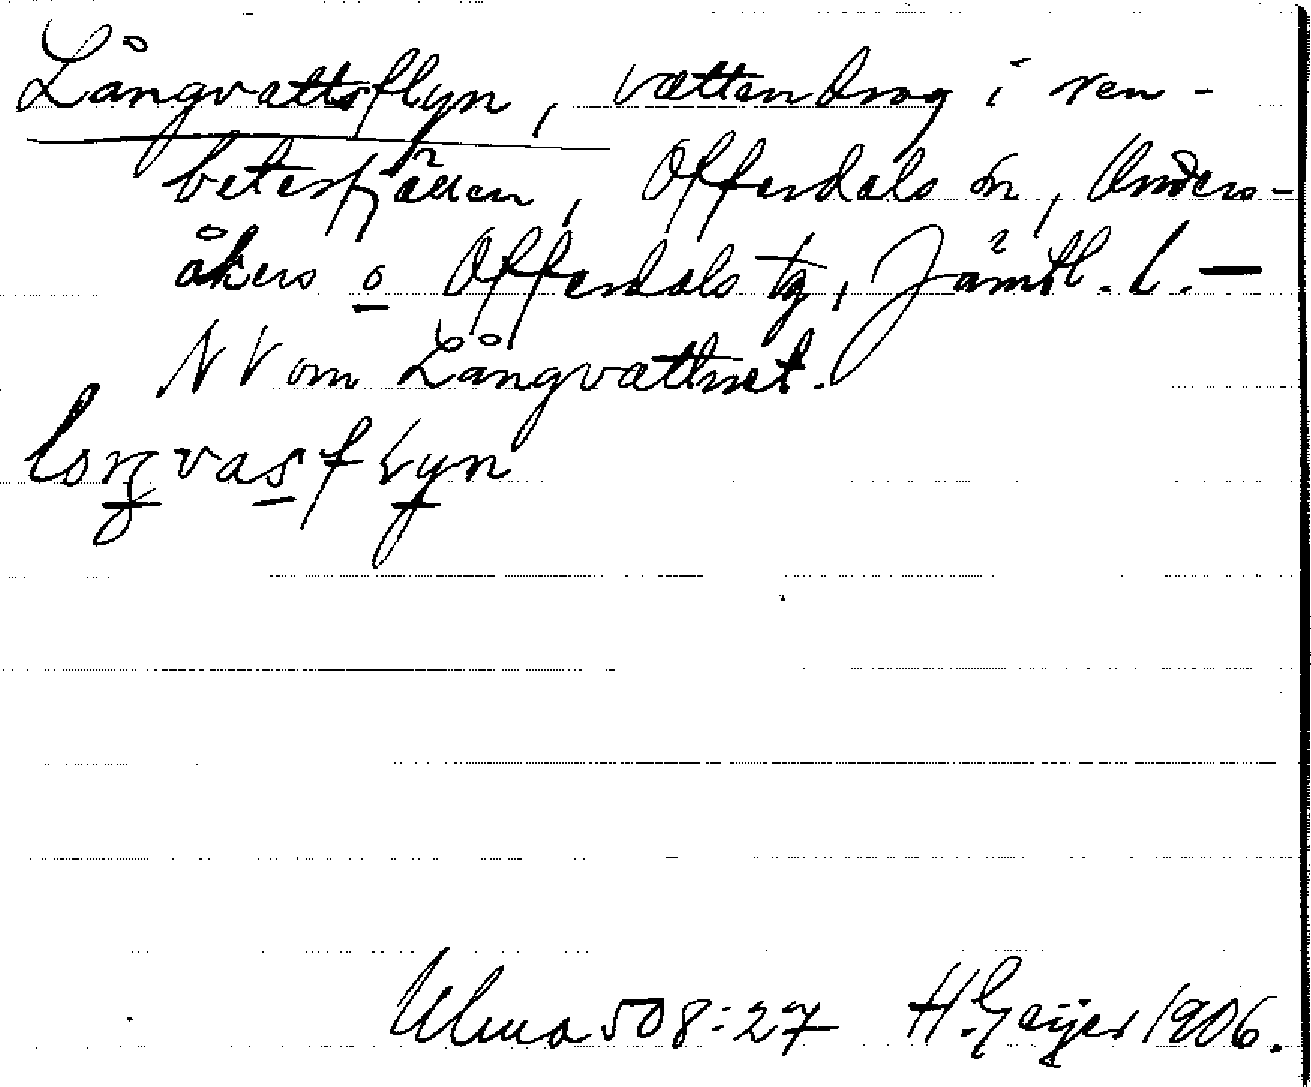 Långvattsflyn, vattendrag i ren-
betesfjällen, Offerdals sn, Unders-
åkers o Offerdals tg, Jämtl. l. —
NV om Långvattnet.
Ulma 508:27 H. Geijer 1906.